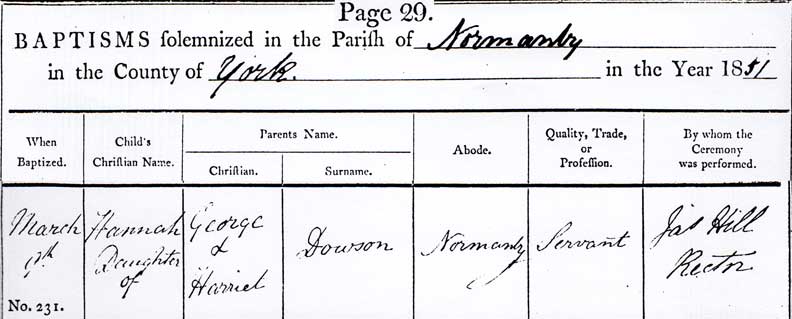 Page 29.
BAPTISMS solemnized in the Parish of Normanby
in the County of York. in the Year 1851
When
Baptized.
Child's
Christian Name.
Parents Name.
Christian.
Surname.
Abode.
Quality, Trade,
or
Profession.
By whom the
Ceremony
was performed.
March
9th
No. 231.
Hannah
Daughter
of
George
&
Harriet
Dowson
Normanby
Servant
Jas Hill
Rector